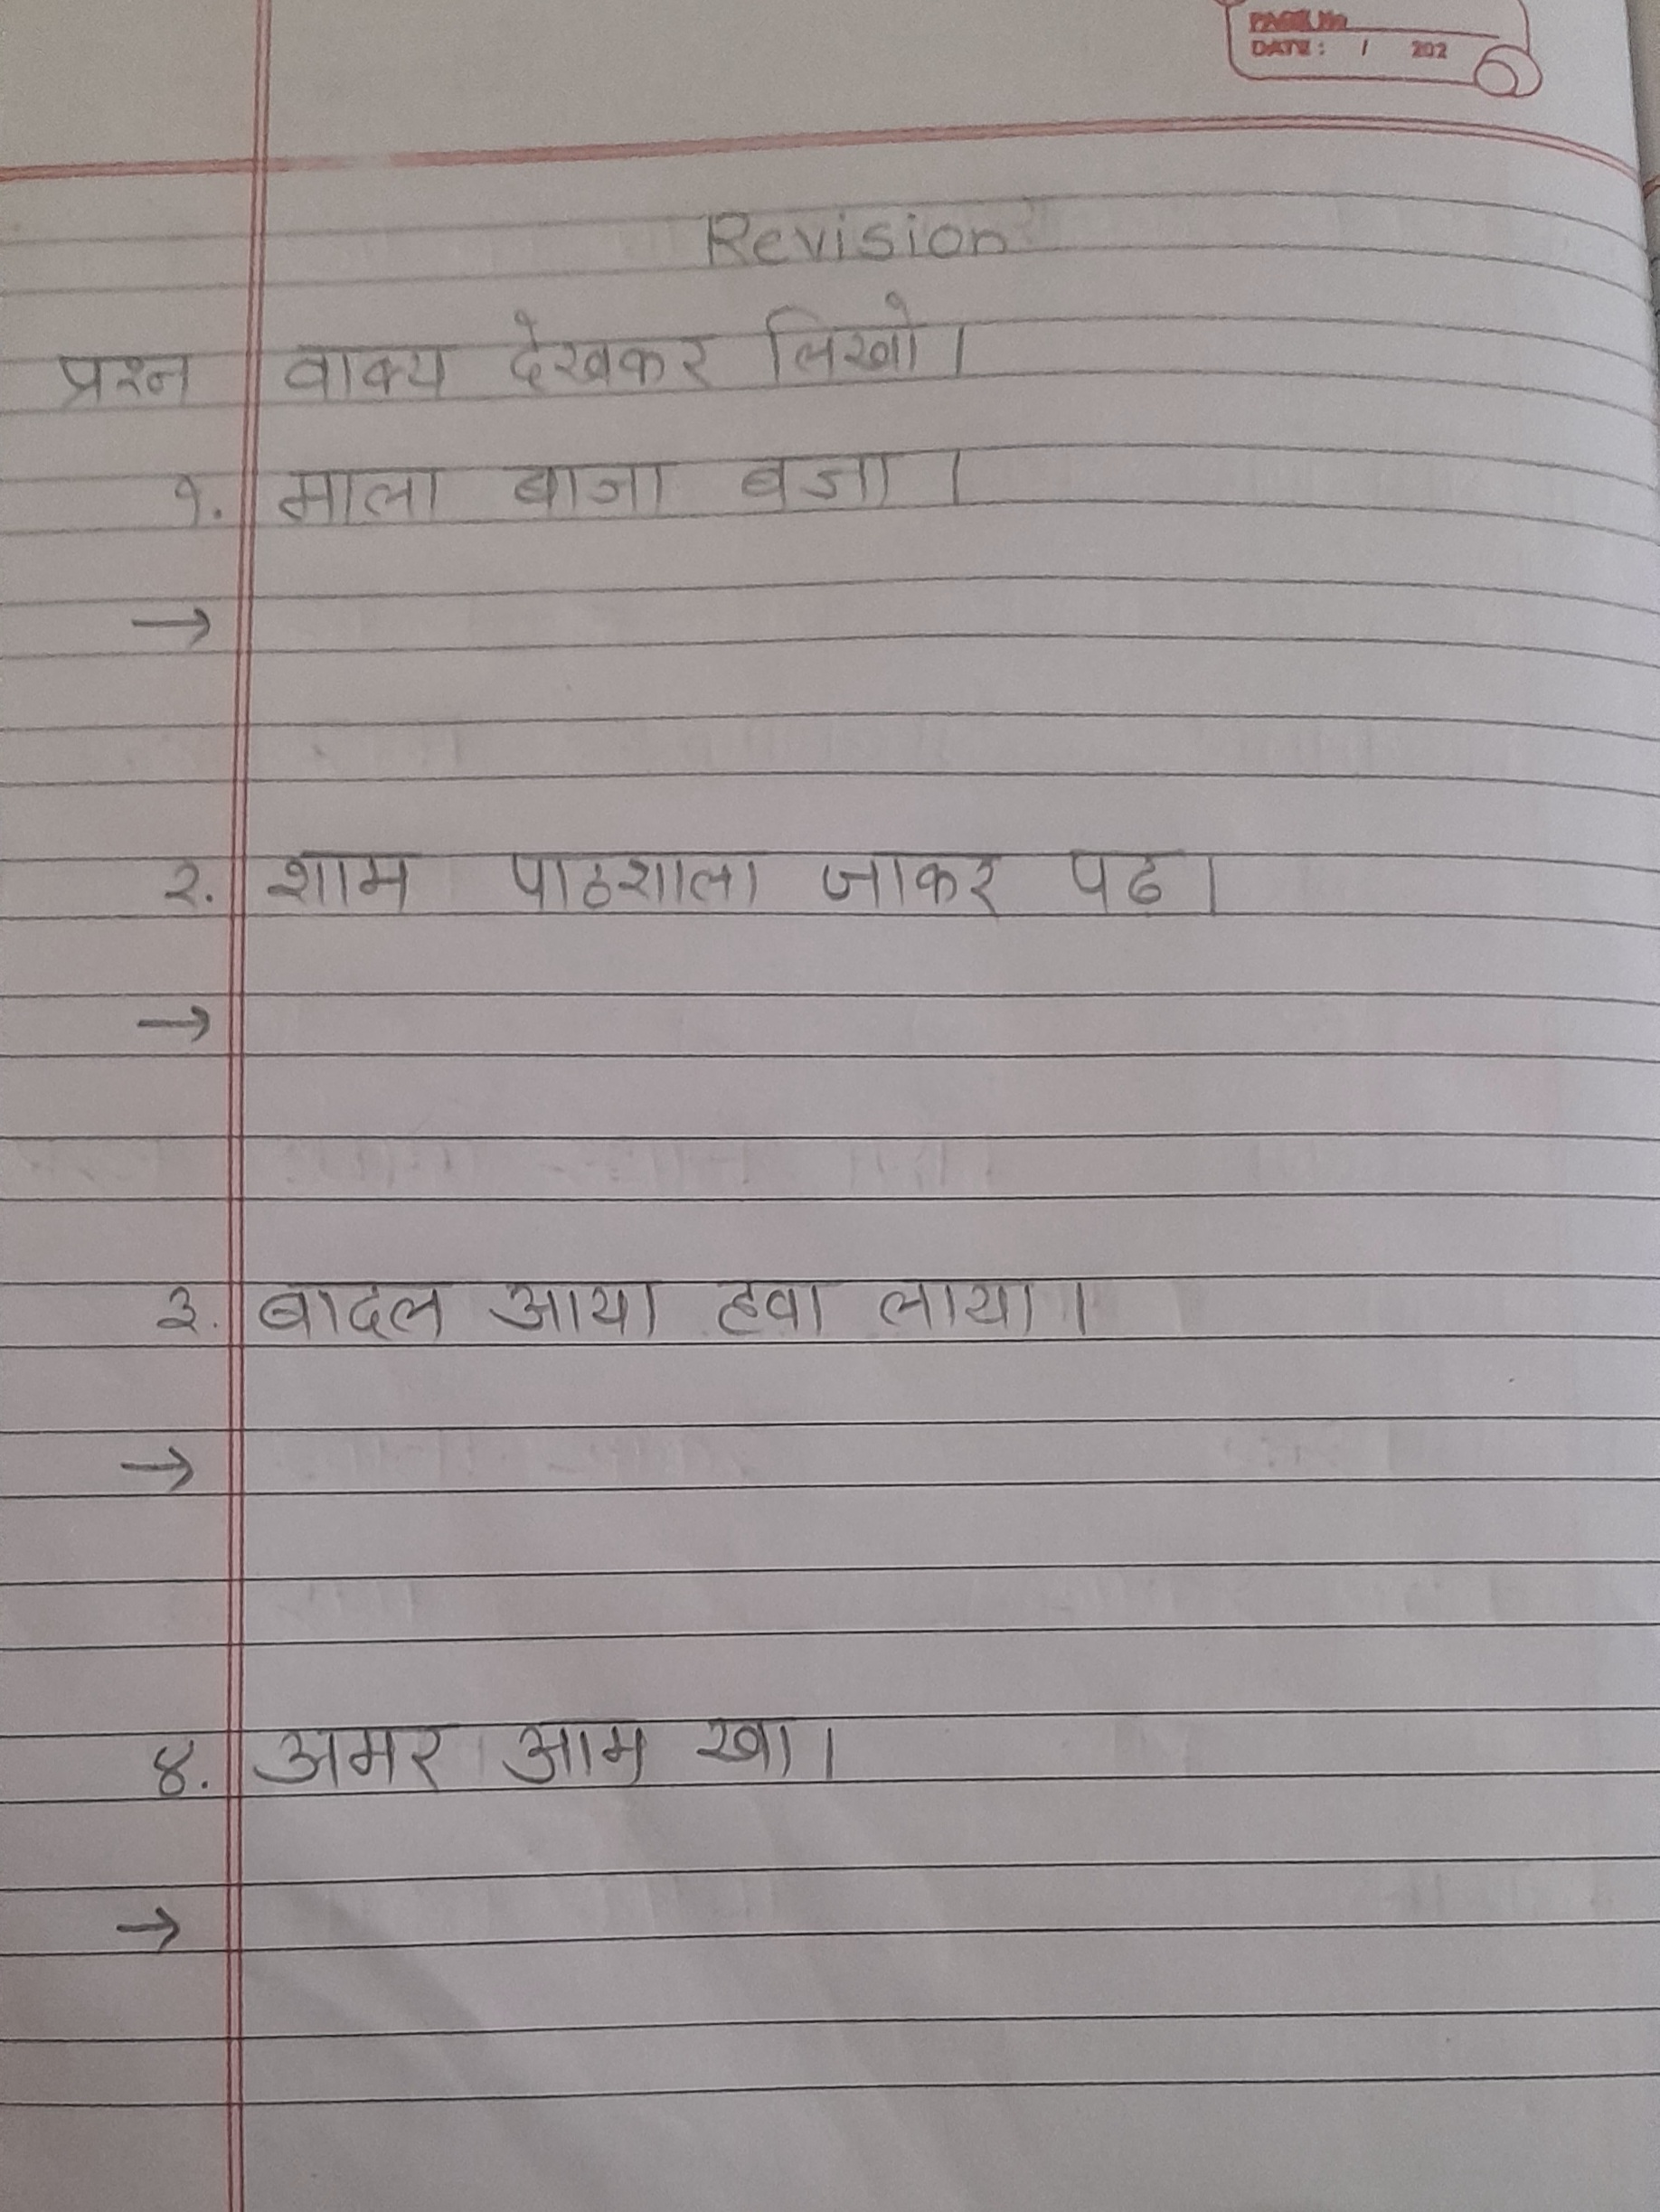 PAGE No
DATE: / 202
Revision
प्रश्न वाक्य देखकर लिखो।
१. माला बाजा बजा।
→
२. शाम पाठशाला जाकर पढ।
→
३. बादल आया हवा लाया।
→
४. अमर आम खा।
→